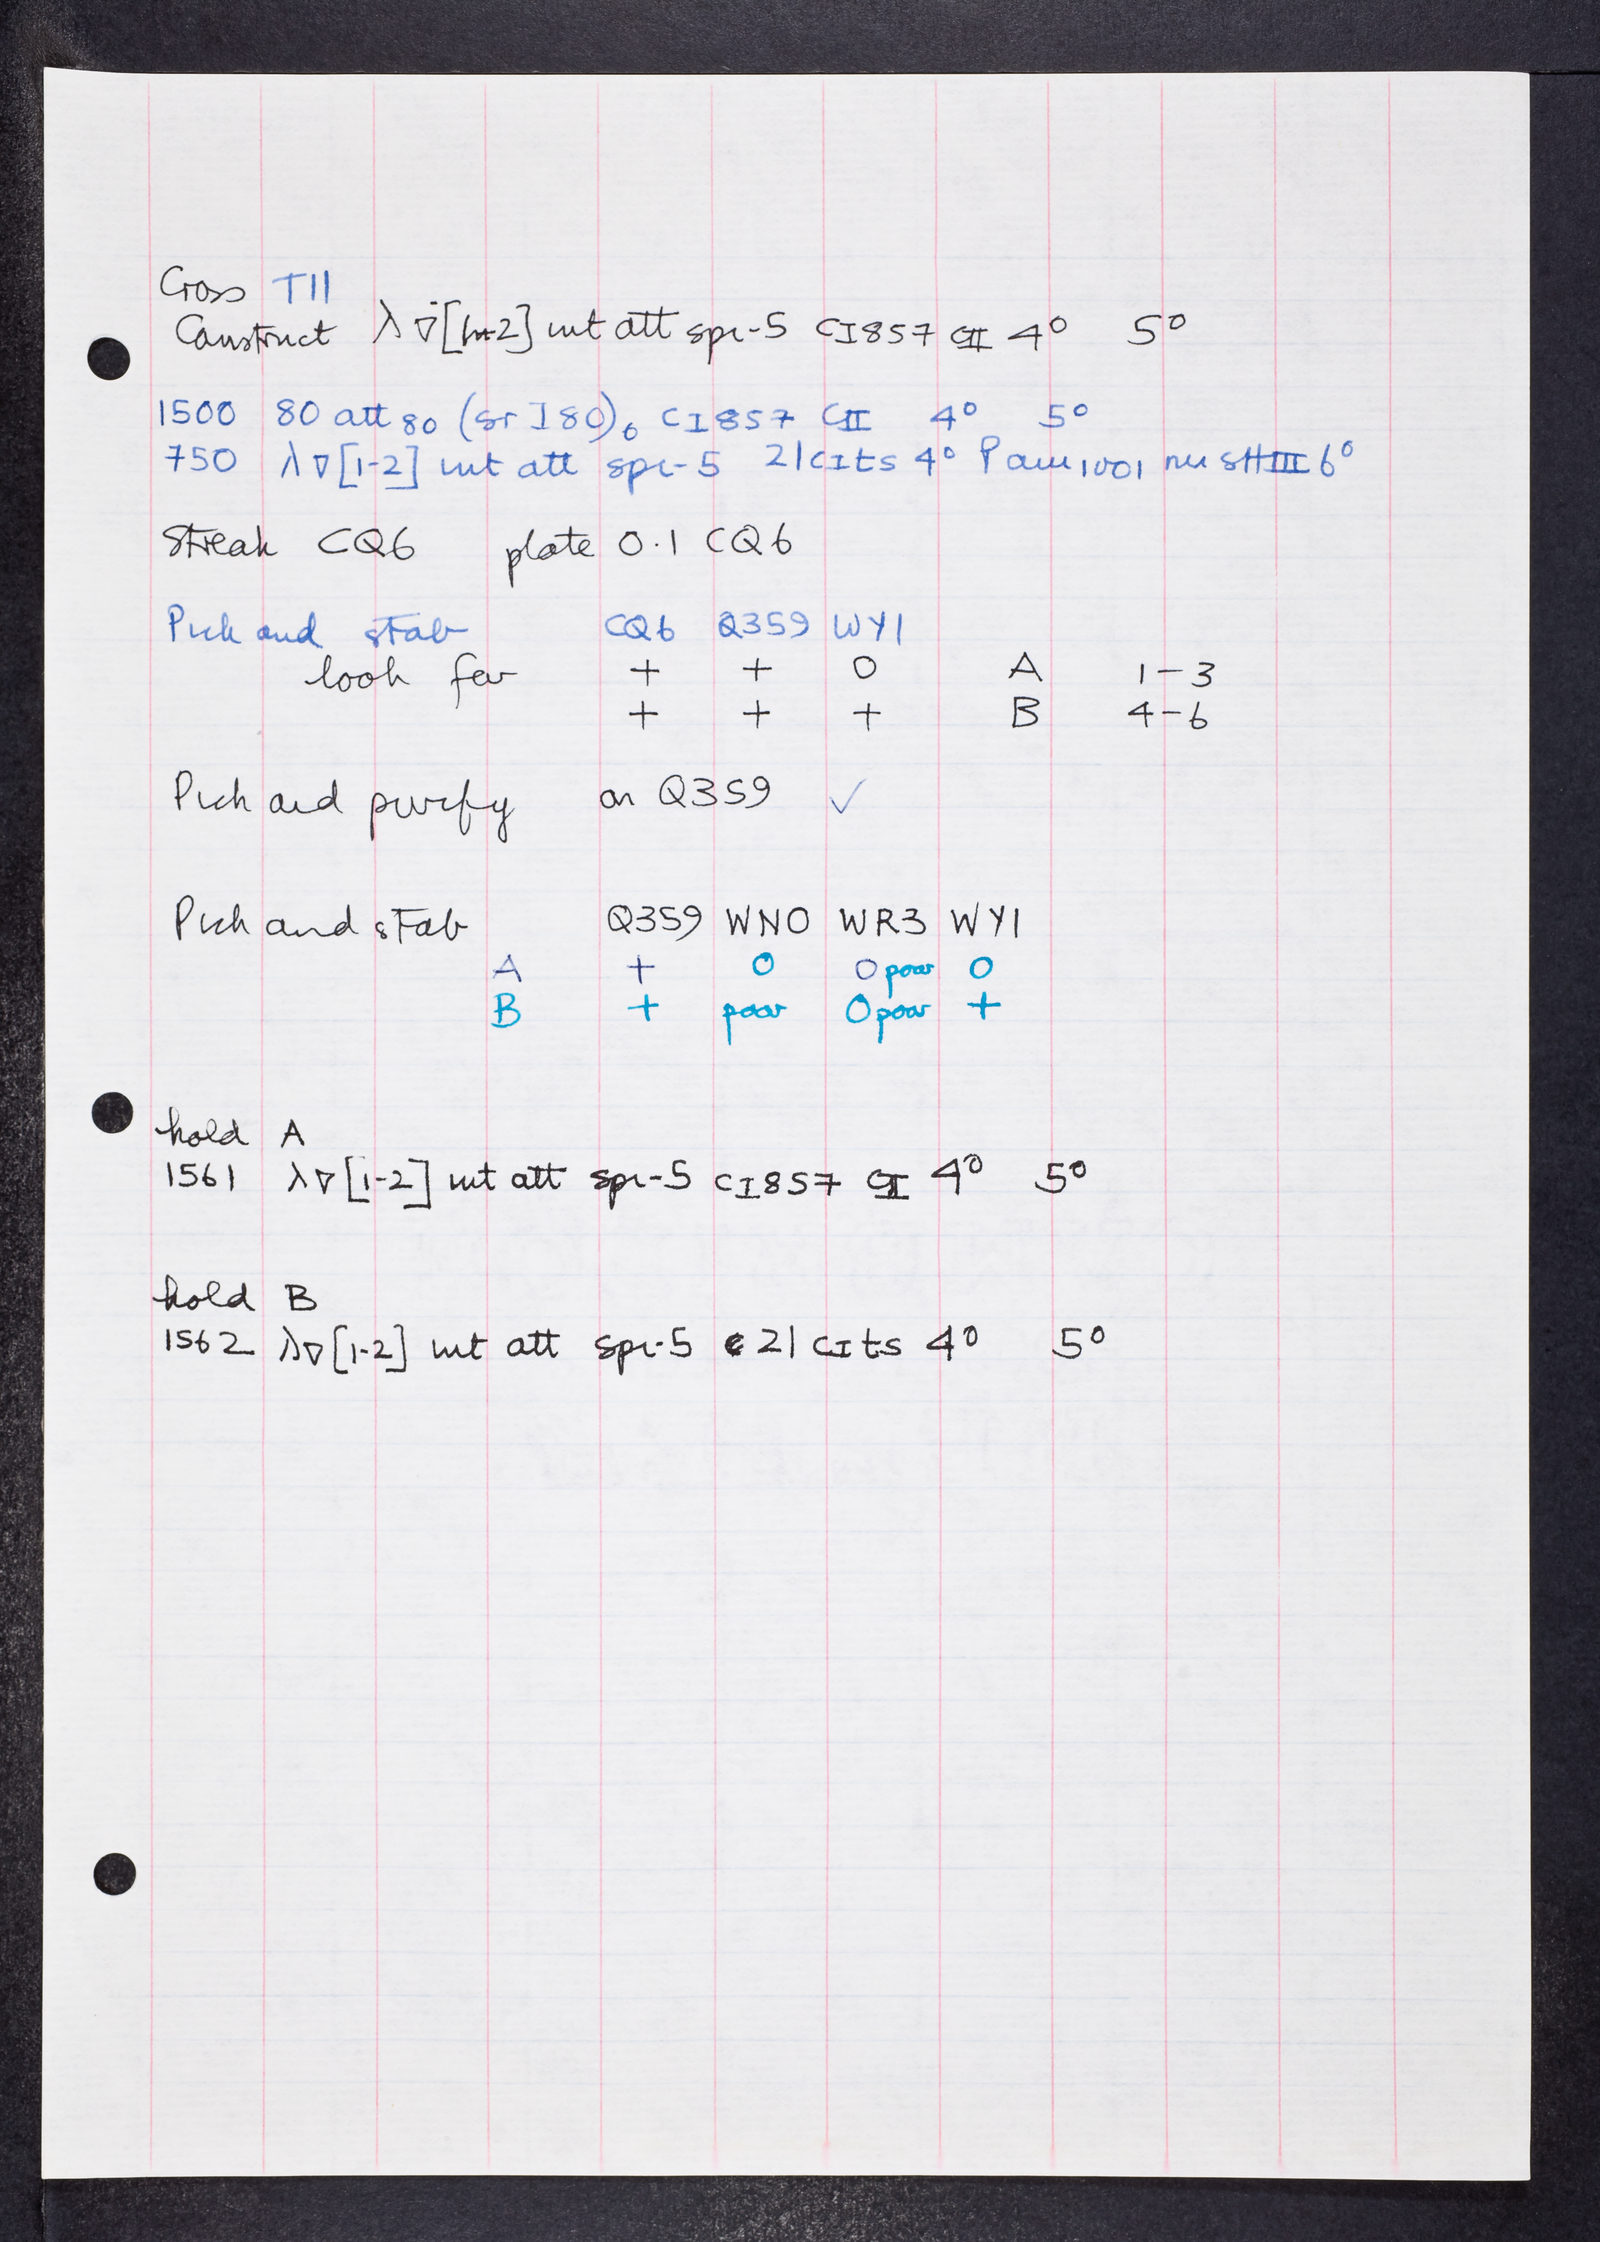 Cross T11
Construct λ ▽[1-2] int att spi-5 CI857 CII 4° 5°
1500 80 att80 (sr I 80)6 CI857 CII 4° 5°
750 λ ▽[1-2] int att spi-5 21 CI ts 4° Pam1001 nin sHIII 6°
Streak CQ6 plate 0.1 CQ6
Pick and stab CQ6 Q359 WY1
look for + + 0 A 1-3
+ + + B 4-6
Pick and purify on Q359 ✓
Pick and stab Q359 WNO WR3 WY1
A + 0 0 poor 0
B + poor 0 poor +
hold A
1561 λ▽[1-2] int att spi-5 CI857 CII 4° 5°
hold B
1562 λ▽[1-2] int att spi-5 21 CI ts 4° 5°